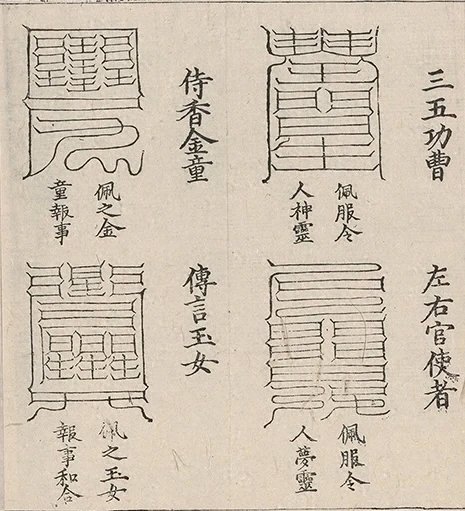 三五功曹
佩服令
人神靈
左右官使者
佩服令
人夢靈
侍香金童
佩之金
童報事
傳言玉女
佩之玉女
報事和合